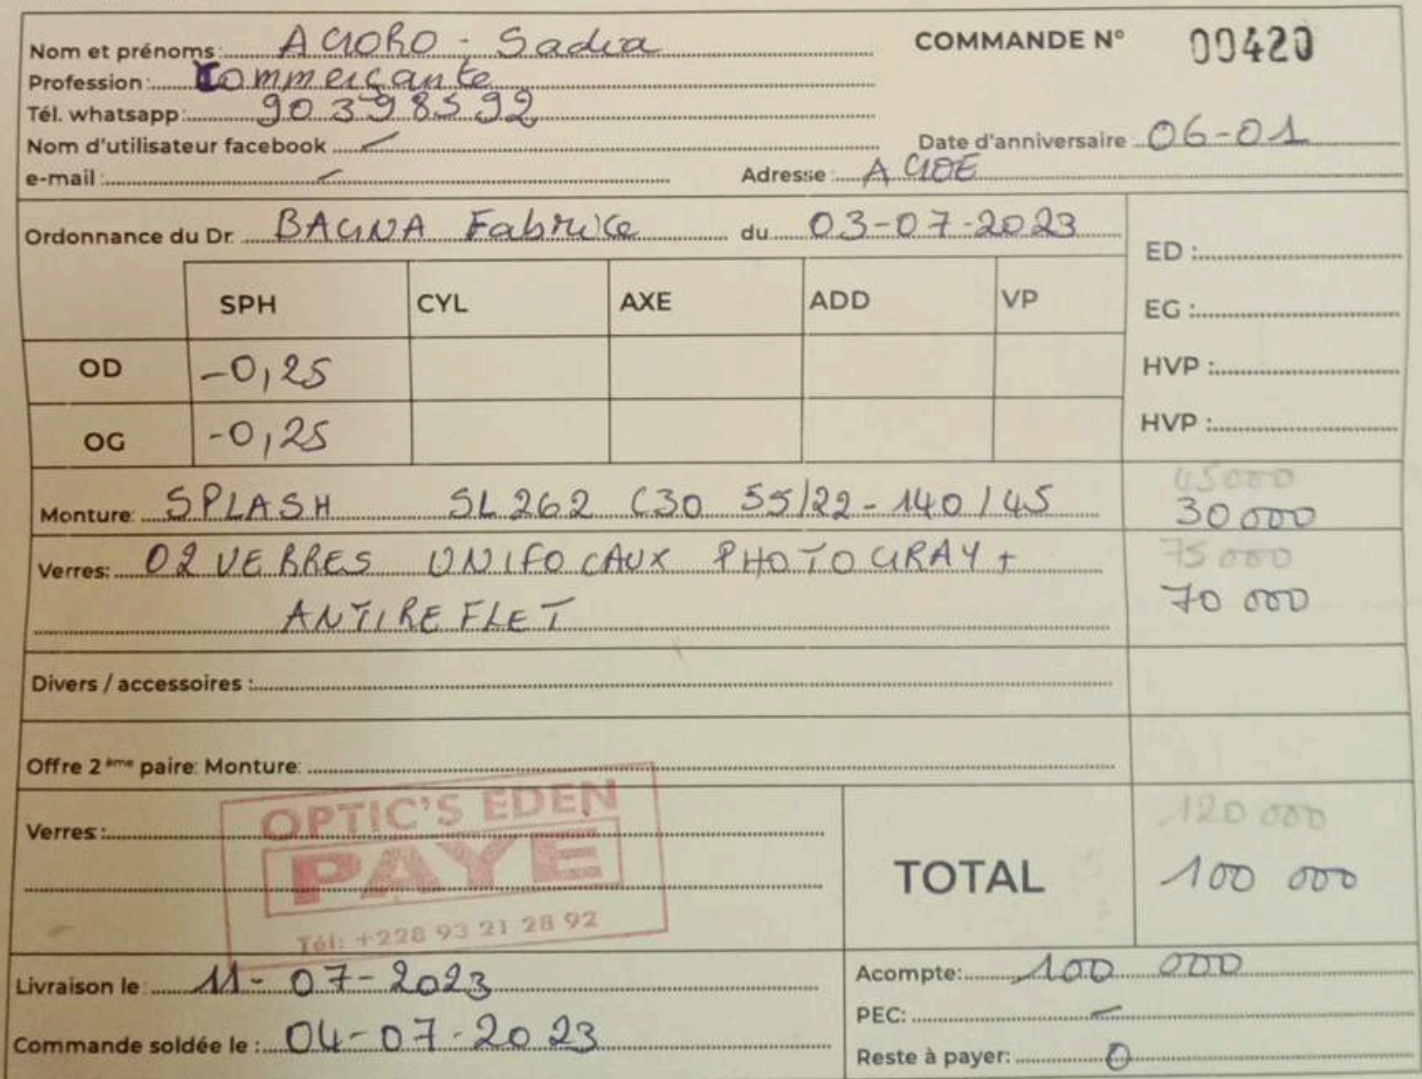 Nom et prénoms: AGORO - Sadia
COMMANDE N° 00420
Profession: Commerçante
Tél. whatsapp: 90398592
Nom d'utilisateur facebook —
Date d'anniversaire 06-01
e-mail: —
Adresse: AGOE
Ordonnance du Dr. BAGNA Fabrice du 03-07-2023
ED:
SPH CYL AXE ADD VP
EG:
OD -0,25
HVP:
OG -0,25
HVP:
45000
Monture: SPLASH SL 262 C30 55/22-140/45 30 000
75 000
Verres: 02 VERRES UNIFOCAUX PHOTOGRAY +
70 000
ANTIREFLET
Divers / accessoires:
Offre 2ème paire: Monture:
Verres:
OPTIC'S EDEN
PAYE
Tél: +228 93 21 28 92
120 000
TOTAL 100 000
Livraison le: 11-07-2023
Acompte: 100 000
PEC: —
Commande soldée le: 04-07-2023
Reste à payer: 0